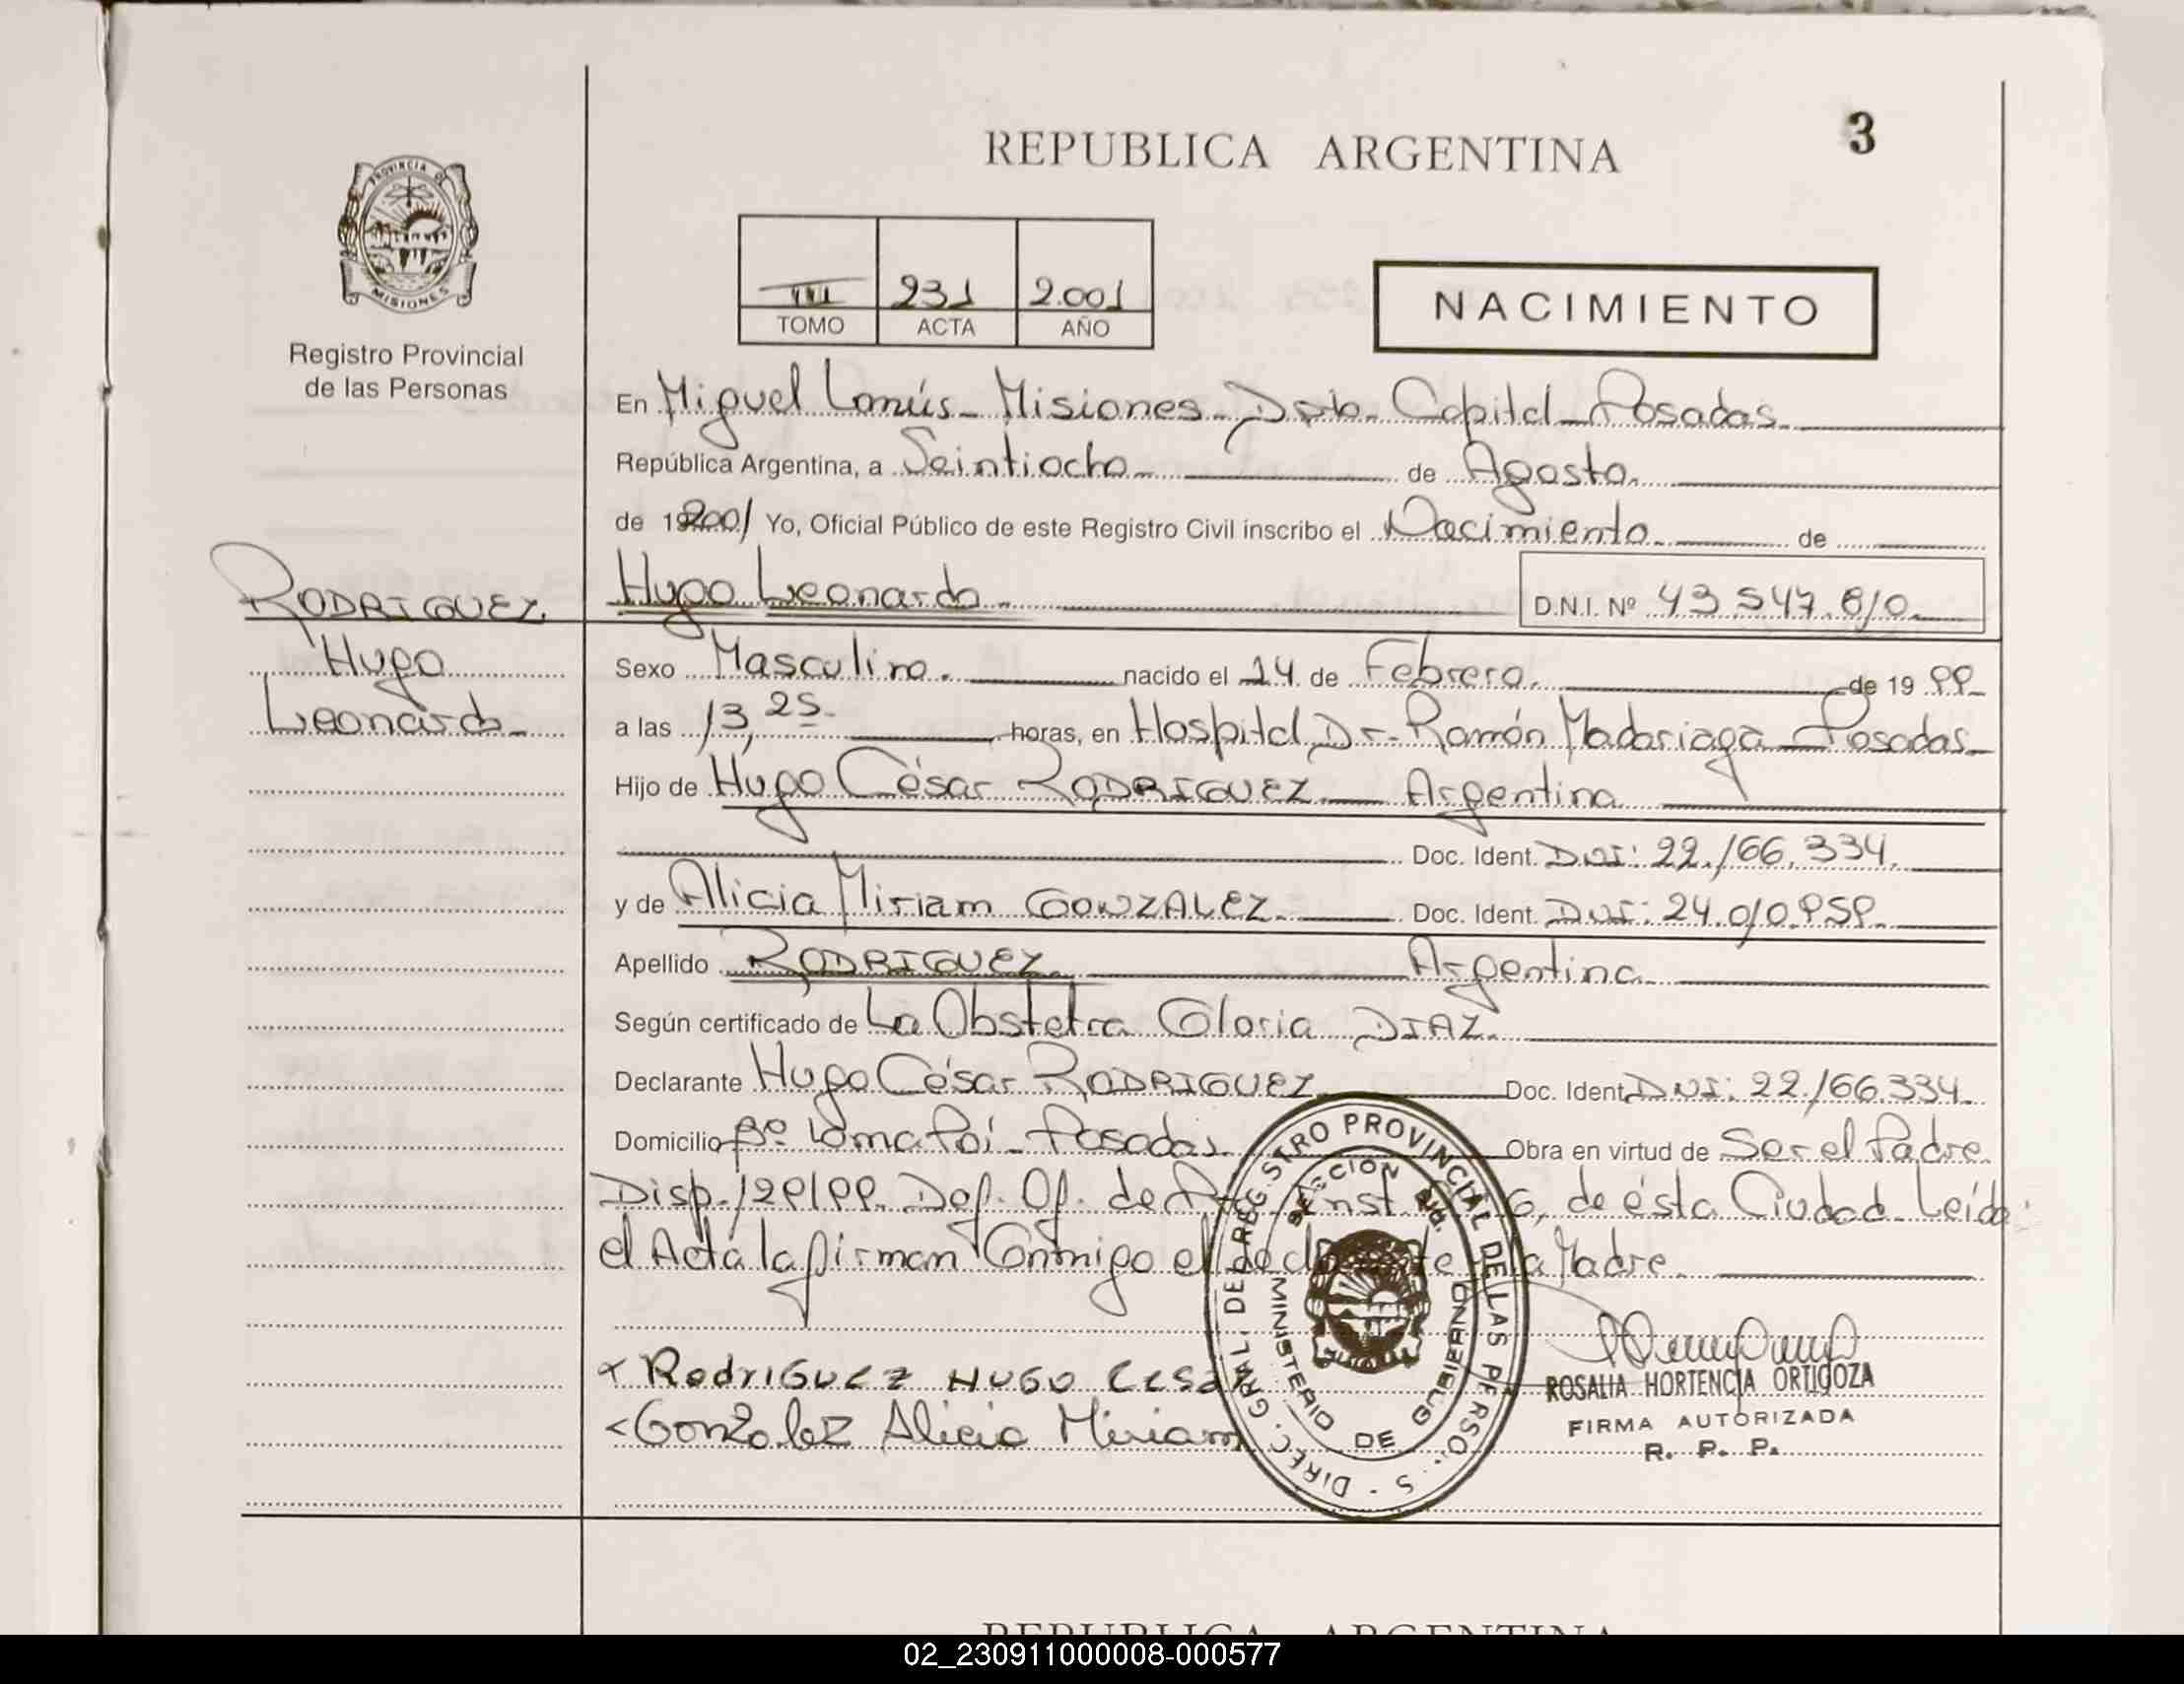 REPUBLICA ARGENTINA
3
PROVINCIA DE
MISIONES
Registro Provincial
de las Personas
III 231 2.001
TOMO ACTA AÑO
NACIMIENTO
En Miguel Lanús - Misiones - Dpto. Capital - Posadas.
República Argentina, a Veintiocho de Agosto.
de 19 2001 Yo, Oficial Público de este Registro Civil inscribo el Nacimiento. de
RODRIGUEZ.
Hugo
Leonardo -
Hugo Leonardo. D.N.I. Nº 43.547.810.
Sexo Masculino. nacido el 14 de Febrero. de 19 99
a las 13,25 horas, en Hospital Dr. Ramón Madariaga - Posadas
Hijo de Hugo César RODRIGUEZ Argentino
Doc. Ident. DNI: 22.166.334.
y de Alicia Miriam GONZALEZ. Doc. Ident. DNI: 24.010.959
Apellido RODRIGUEZ Argentina
Según certificado de La Obstetra Gloria DIAZ.
Declarante Hugo César RODRIGUEZ Doc. Ident DNI: 22.166.334
Domicilio Bº Loma Poí - Posadas Obra en virtud de Ser el Padre.
Disp. 129/99. Def. Of. de Inst. 6, de ésta Ciudad. Leída
el Acta la firman Conmigo el declarante la Madre.
x RodriGuez HuGo Cesar
< Gonzalez Alicia Miriam
DIREC. GRAL. DEL REGISTRO PROVINCIAL DE LAS PERSO. S -
SECCIÓN
MINISTERIO DE GOBIERNO
ROSALIA HORTENCIA ORTIGOZA
FIRMA AUTORIZADA
R. P. P.
REPUBLICA ARGENTINA
02_230911000008-000577